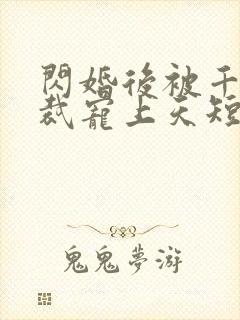 閃婚後被千
裁寵上天短
鬼鬼夢游